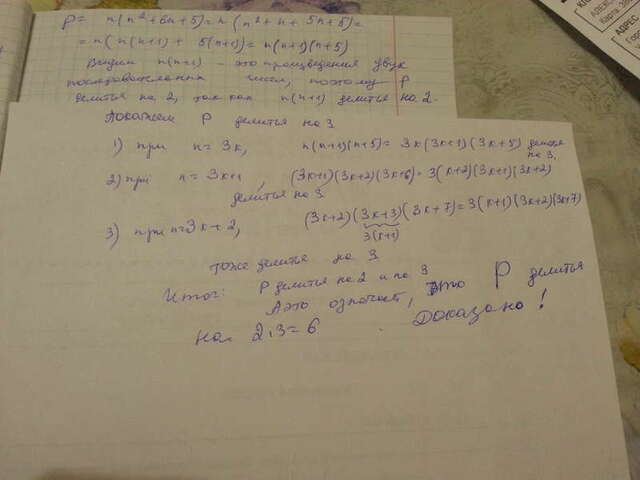 P = n(n²+6n+5)=n(n²+n+5n+5)=
=n(n(n+1)+5(n+1))=n(n+1)(n+5)
Видим n(n+1) - это произведения двух
последовательных чисел, поэтому P
делиться на 2, так как n(n+1) делитье на 2.
Докажем P делитья на 3
1) при n=3k, n(n+1)(n+5)=3k(3k+1)(3k+5) делитья
на 3,
2) при n=3k+1, (3k+1)(3k+2)(3k+6)=3(k+2)(3k+1)(3k+2)
делитья на 3
3) при n=3k+2, (3k+2)(3k+3)(3k+7)=3(k+1)(3k+2)(3k+7)
3(k+1)
тоже делитья на 3
Итог: P делитья на 2 и на 3
А это означает, что P делитья
на 2·3=6 Доказано!